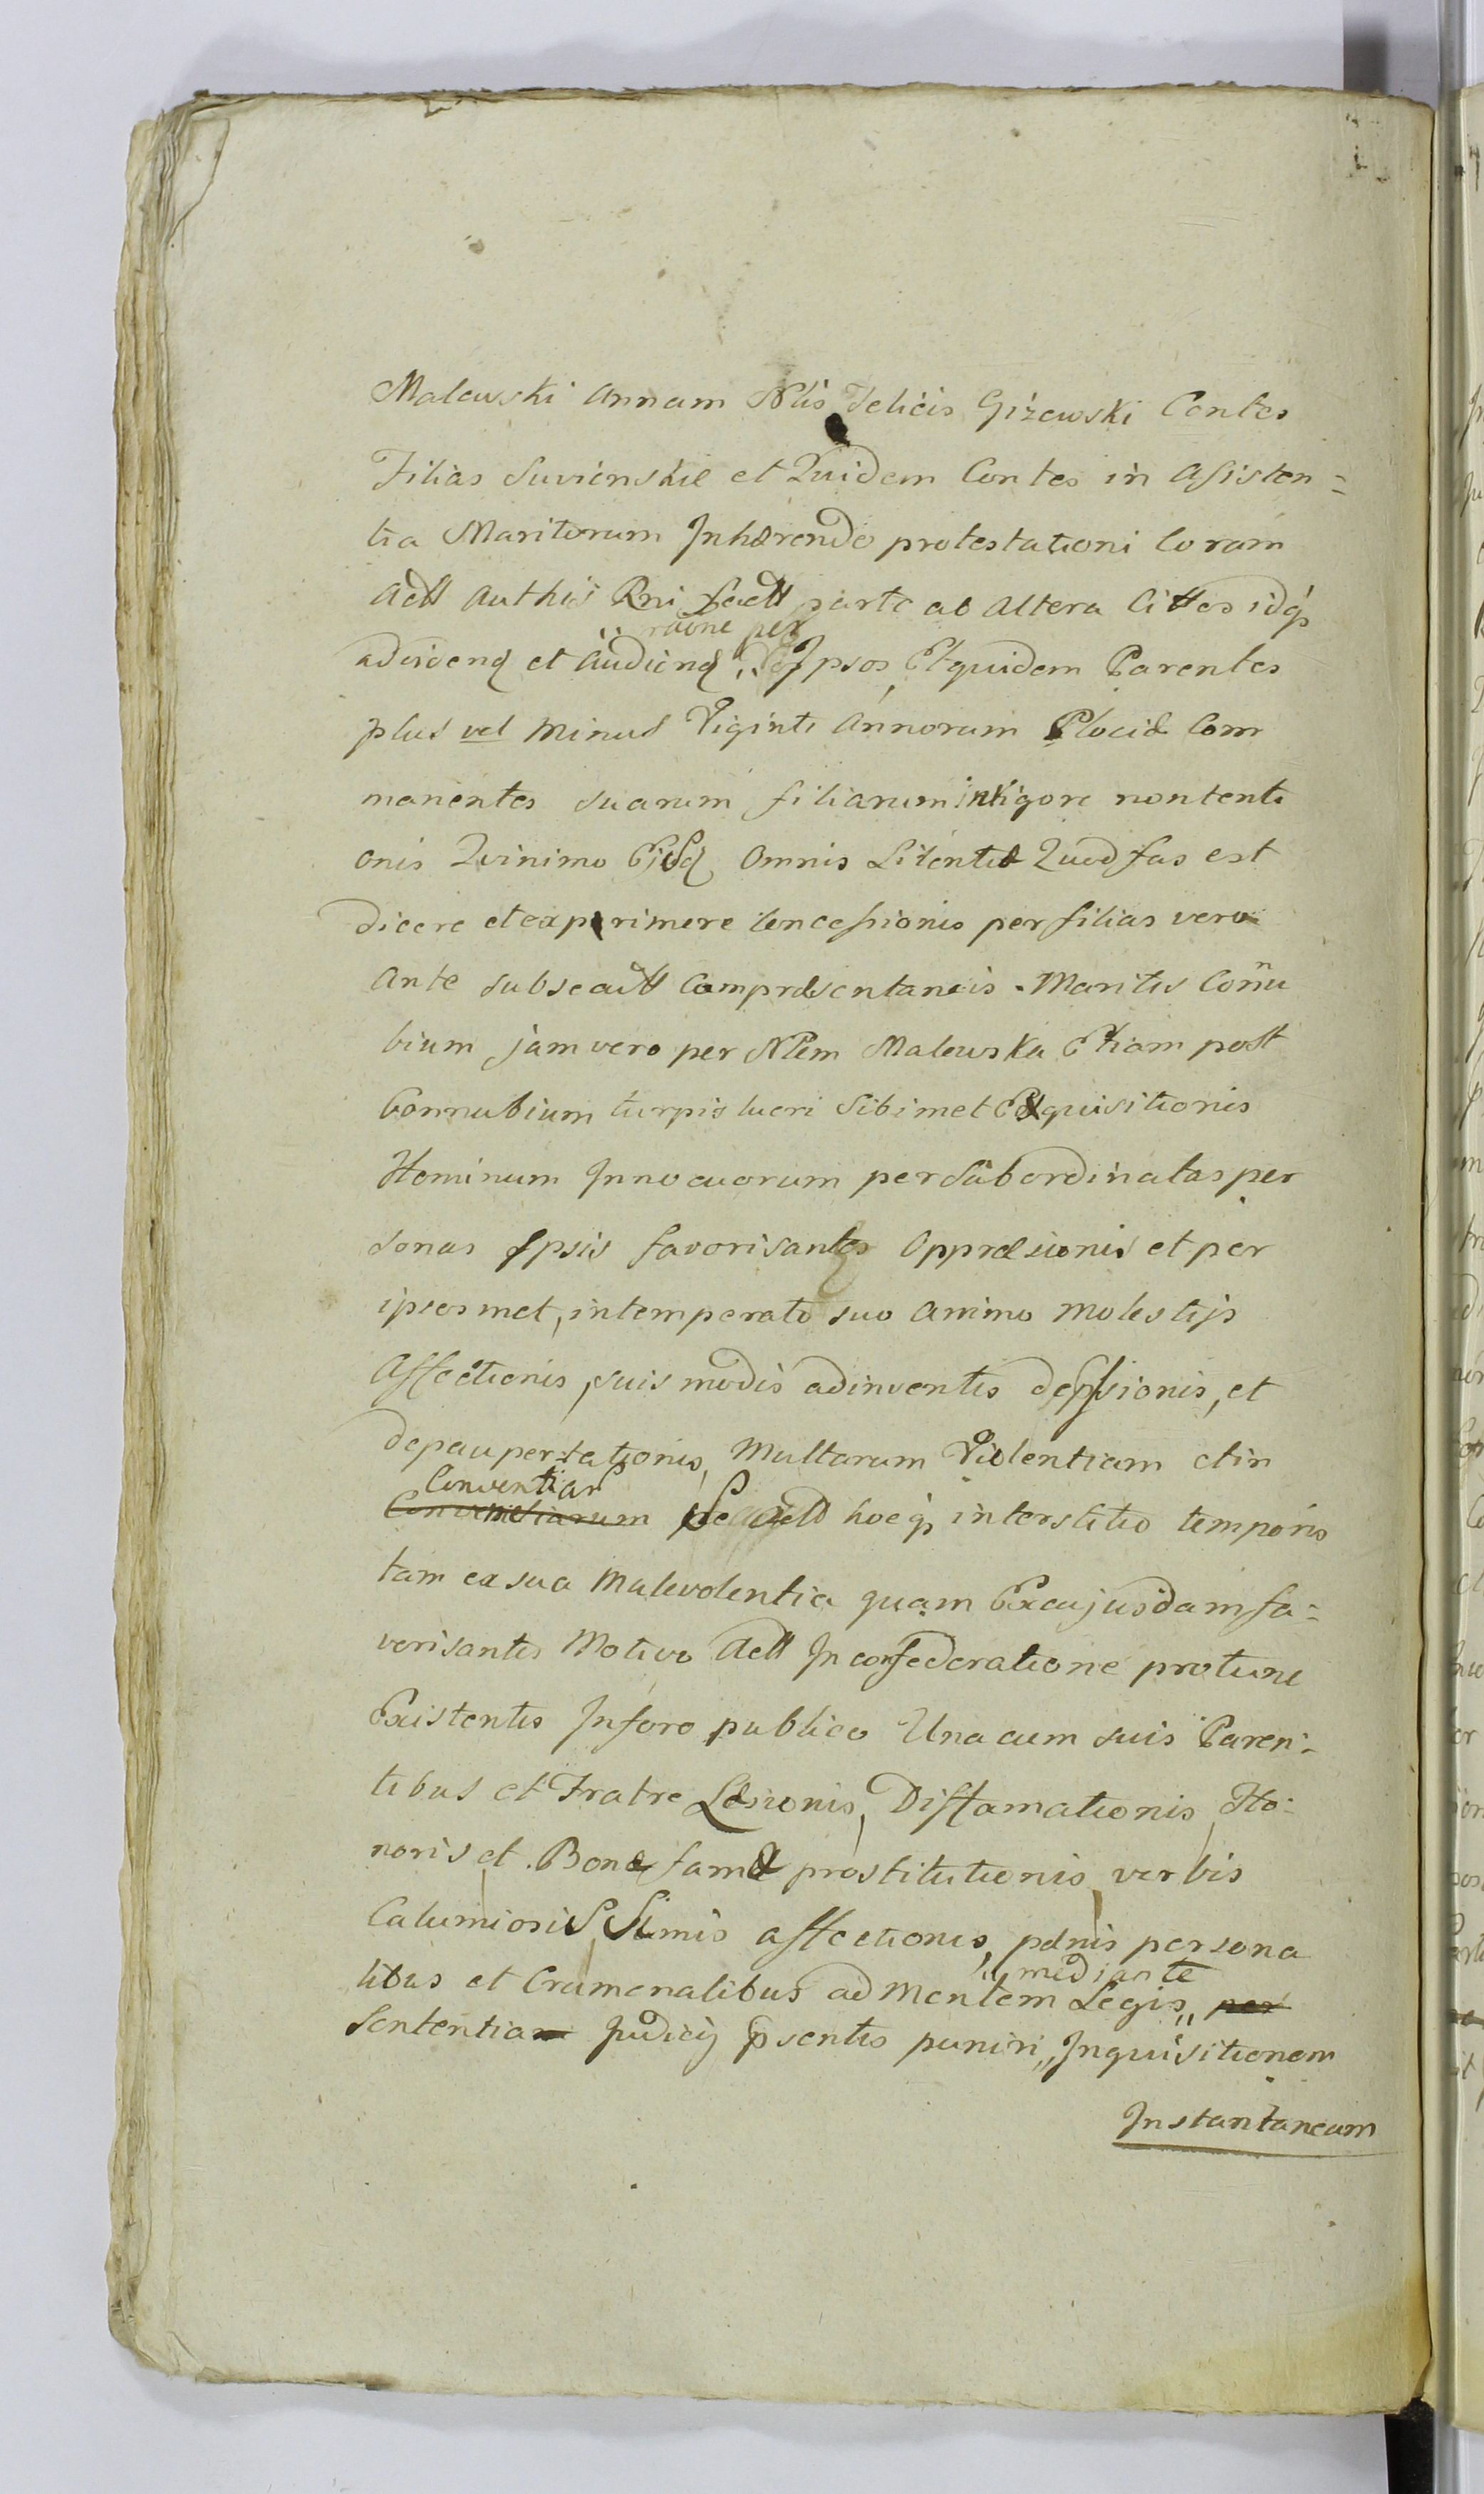 Malewski Annam Nlis Felicis Giżewski Contes
Filias Suvienskie et Quidem Contes in Asisten=
tia Maritorum Inhærendo protestationi Coram
Actt Authis Rni factt parte ab Altera Cittes idq3
advidend et Audiend ratione per Ipsos Et quidem Parentes
plus vel minus Viginti Annorum Plociæ Com
manentes suarum filiarum in Rigore non tenti
onis Quinimo Ejusd Omnis Licentiæ Quod fas est
dicere et experimere Concessionis per filias vero
Ante subse actt Compræsentaneis Maritis Connu
bium jam vero per Nlem Malewska Etiam post
Connubium turpis lucri Sibimet Exquisitionis
Hominum Innocuorum per Subordinatas per
sonas Ipsis favorisantes Oppræsionis et per
ipsosmet, intemperato suo Animo Molestijs
Affectionis, suis modis adinventis depssionis, et
depaupertationis, Multarum Violentiam et in
Conventiar
Conventiarum se actt hocq3 interstitio temporis
tam ex sua Malevolentia quam Ex cujusdam fa=
verisantis Motivo Actt In confederatione protunc
Existentis In foro publico Una cum suis Paren=
tibus et Fratre Læsionis, Diffamationis Ho=
noris et Bonæ famæ prostitutionis verbis
Calumiosissimis affectionis, pænis persona
libus et Crumenalibus ad Mentem Legis,, mediante per
Sententiam Judicij psentis puniri,, Inquisitionem
Instantaneam